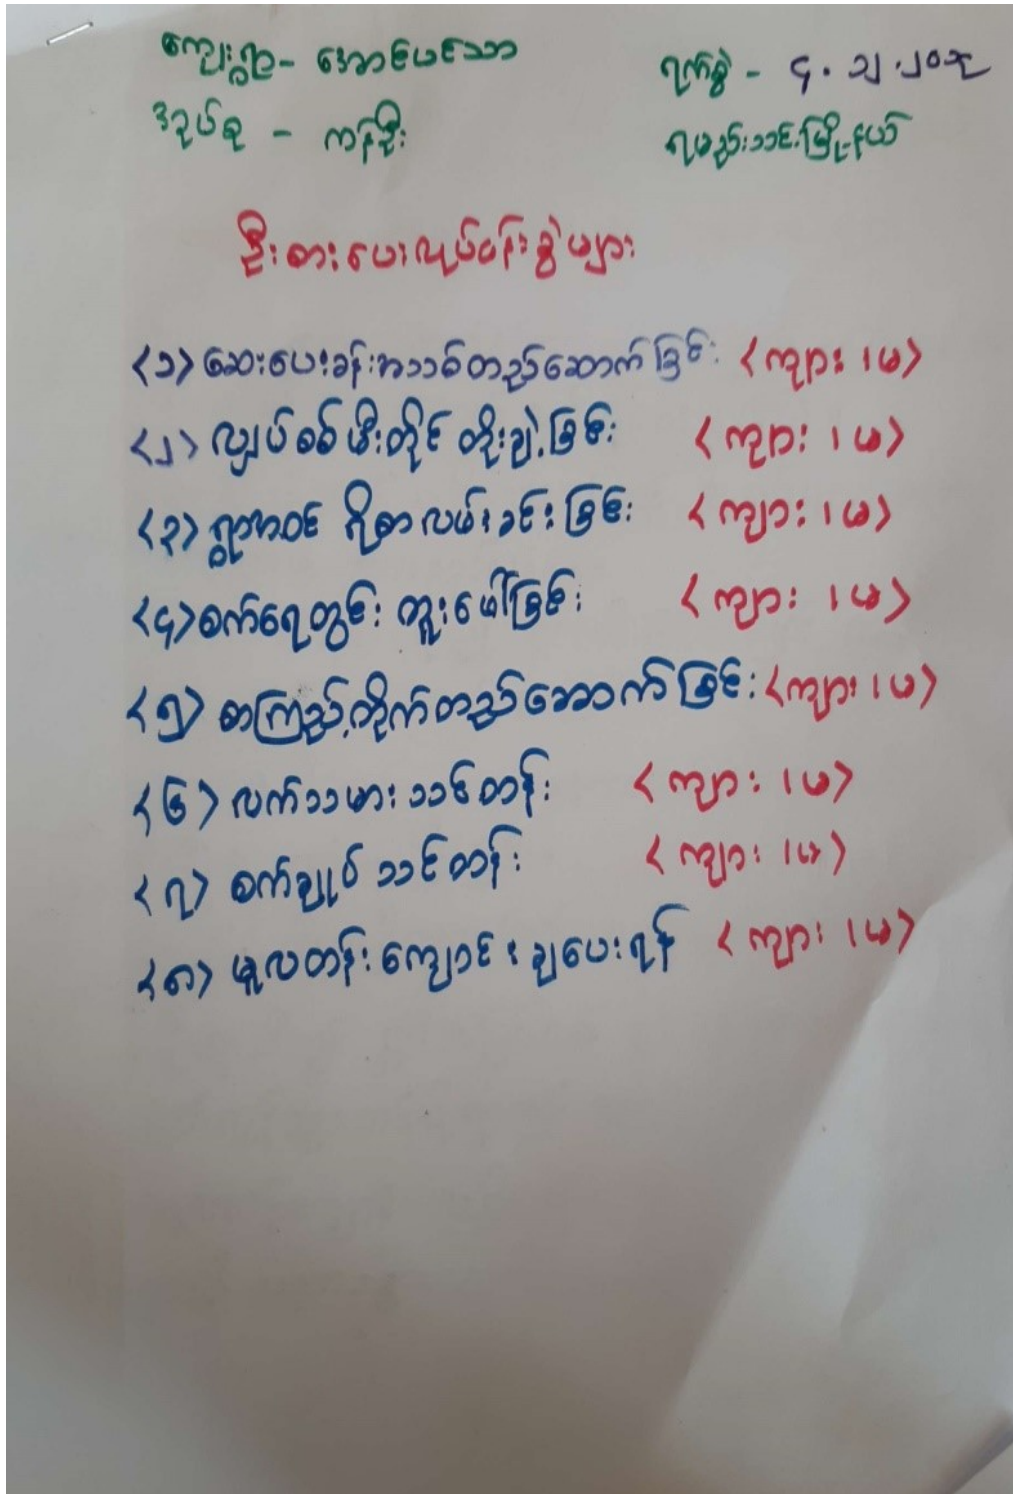 ကျေးရွာ - အောင်မင်္သာ ရက်စွဲ - ၄.၁၂.၂၀၁၃
အုပ်စု - ကန်ဦး ရမည်းသင်းမြို့နယ်
ဦးစားပေးလုပ်ငန်းစွဲများ
<၁> ဆေးပေးခန်းအသစ်တည်ဆောက်ခြင်း <ကျား၊မ>
<၂> လျှပ်စစ်မီးတိုင် တိုးချဲ့ခြင်း <ကျား၊မ>
<၃> ရွာအဝင် ဂုံစာလမ်းခင်းခြင်း <ကျား၊မ>
<၄> စက်ရေတွင်း တူးဖေါ်ခြင်း <ကျား၊မ>
<၅> စာကြည့်တိုက်တည်ဆောက်ခြင်း <ကျား၊မ>
<၆> လက်သမားသင်တန်း <ကျား၊မ>
<၇> စက်ချုပ်သင်တန်း <ကျား၊မ>
<၈> မူလတန်းကျောင်းချပေးရန် <ကျား၊မ>